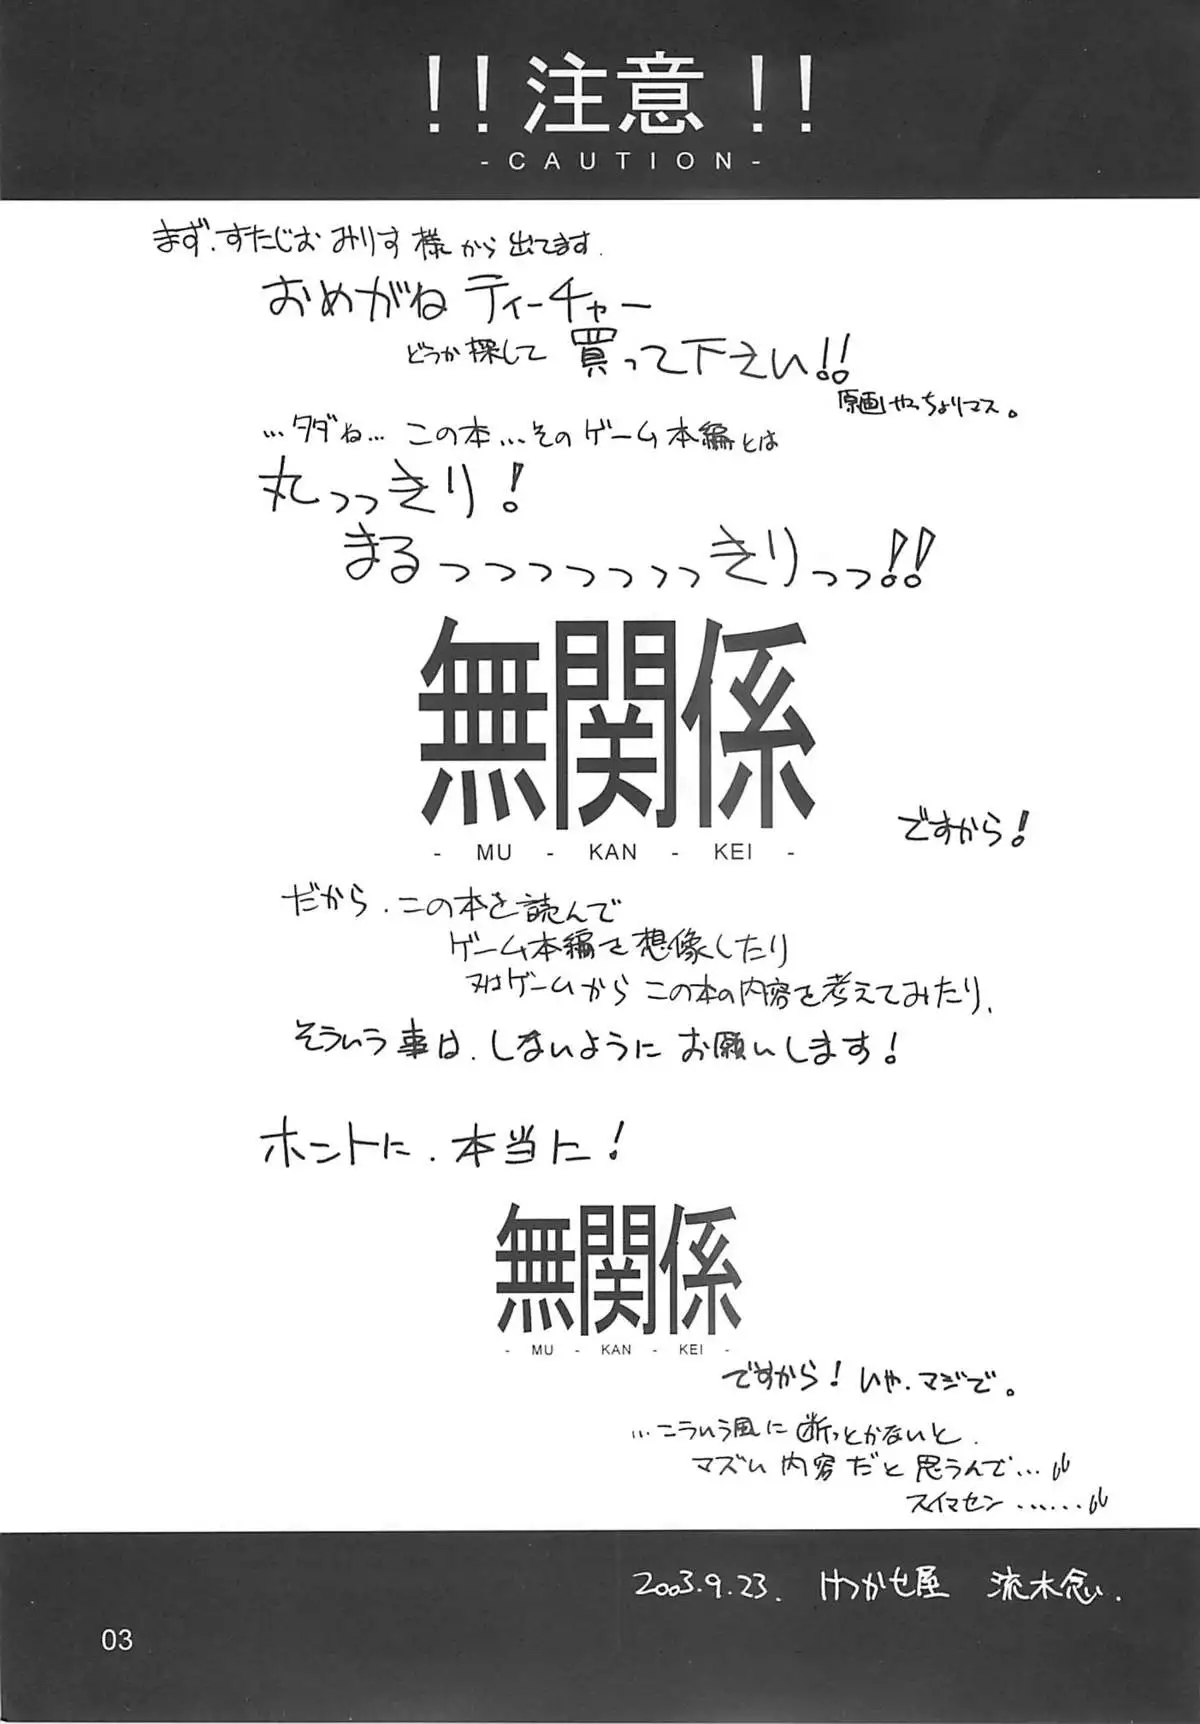 !!注意!!
-CAUTION-
まず、すたじお みりす 様から出てます。
おめがね ティーチャー
どうか探して 買って下さい!!
原画やっちょりマス。
…タダね… この本…そのゲーム本編とは
丸っっきり!
まるっっっっっっっきりっっ!!
無関係
- MU - KAN - KEI -
ですから!
だから、この本を読んで
ゲーム本編を想像したり
又はゲームから この本の内容を考えてみたり、
そういう事は、しないようにお願いします!
ホントに、本当に!
無関係
- MU - KAN - KEI -
ですから! いや、マジで。
…こういう風に断っとかないと、
マズい内容だと思うんで…
スイマセン……
2003.9.23. けつかせ屋 流木念
03